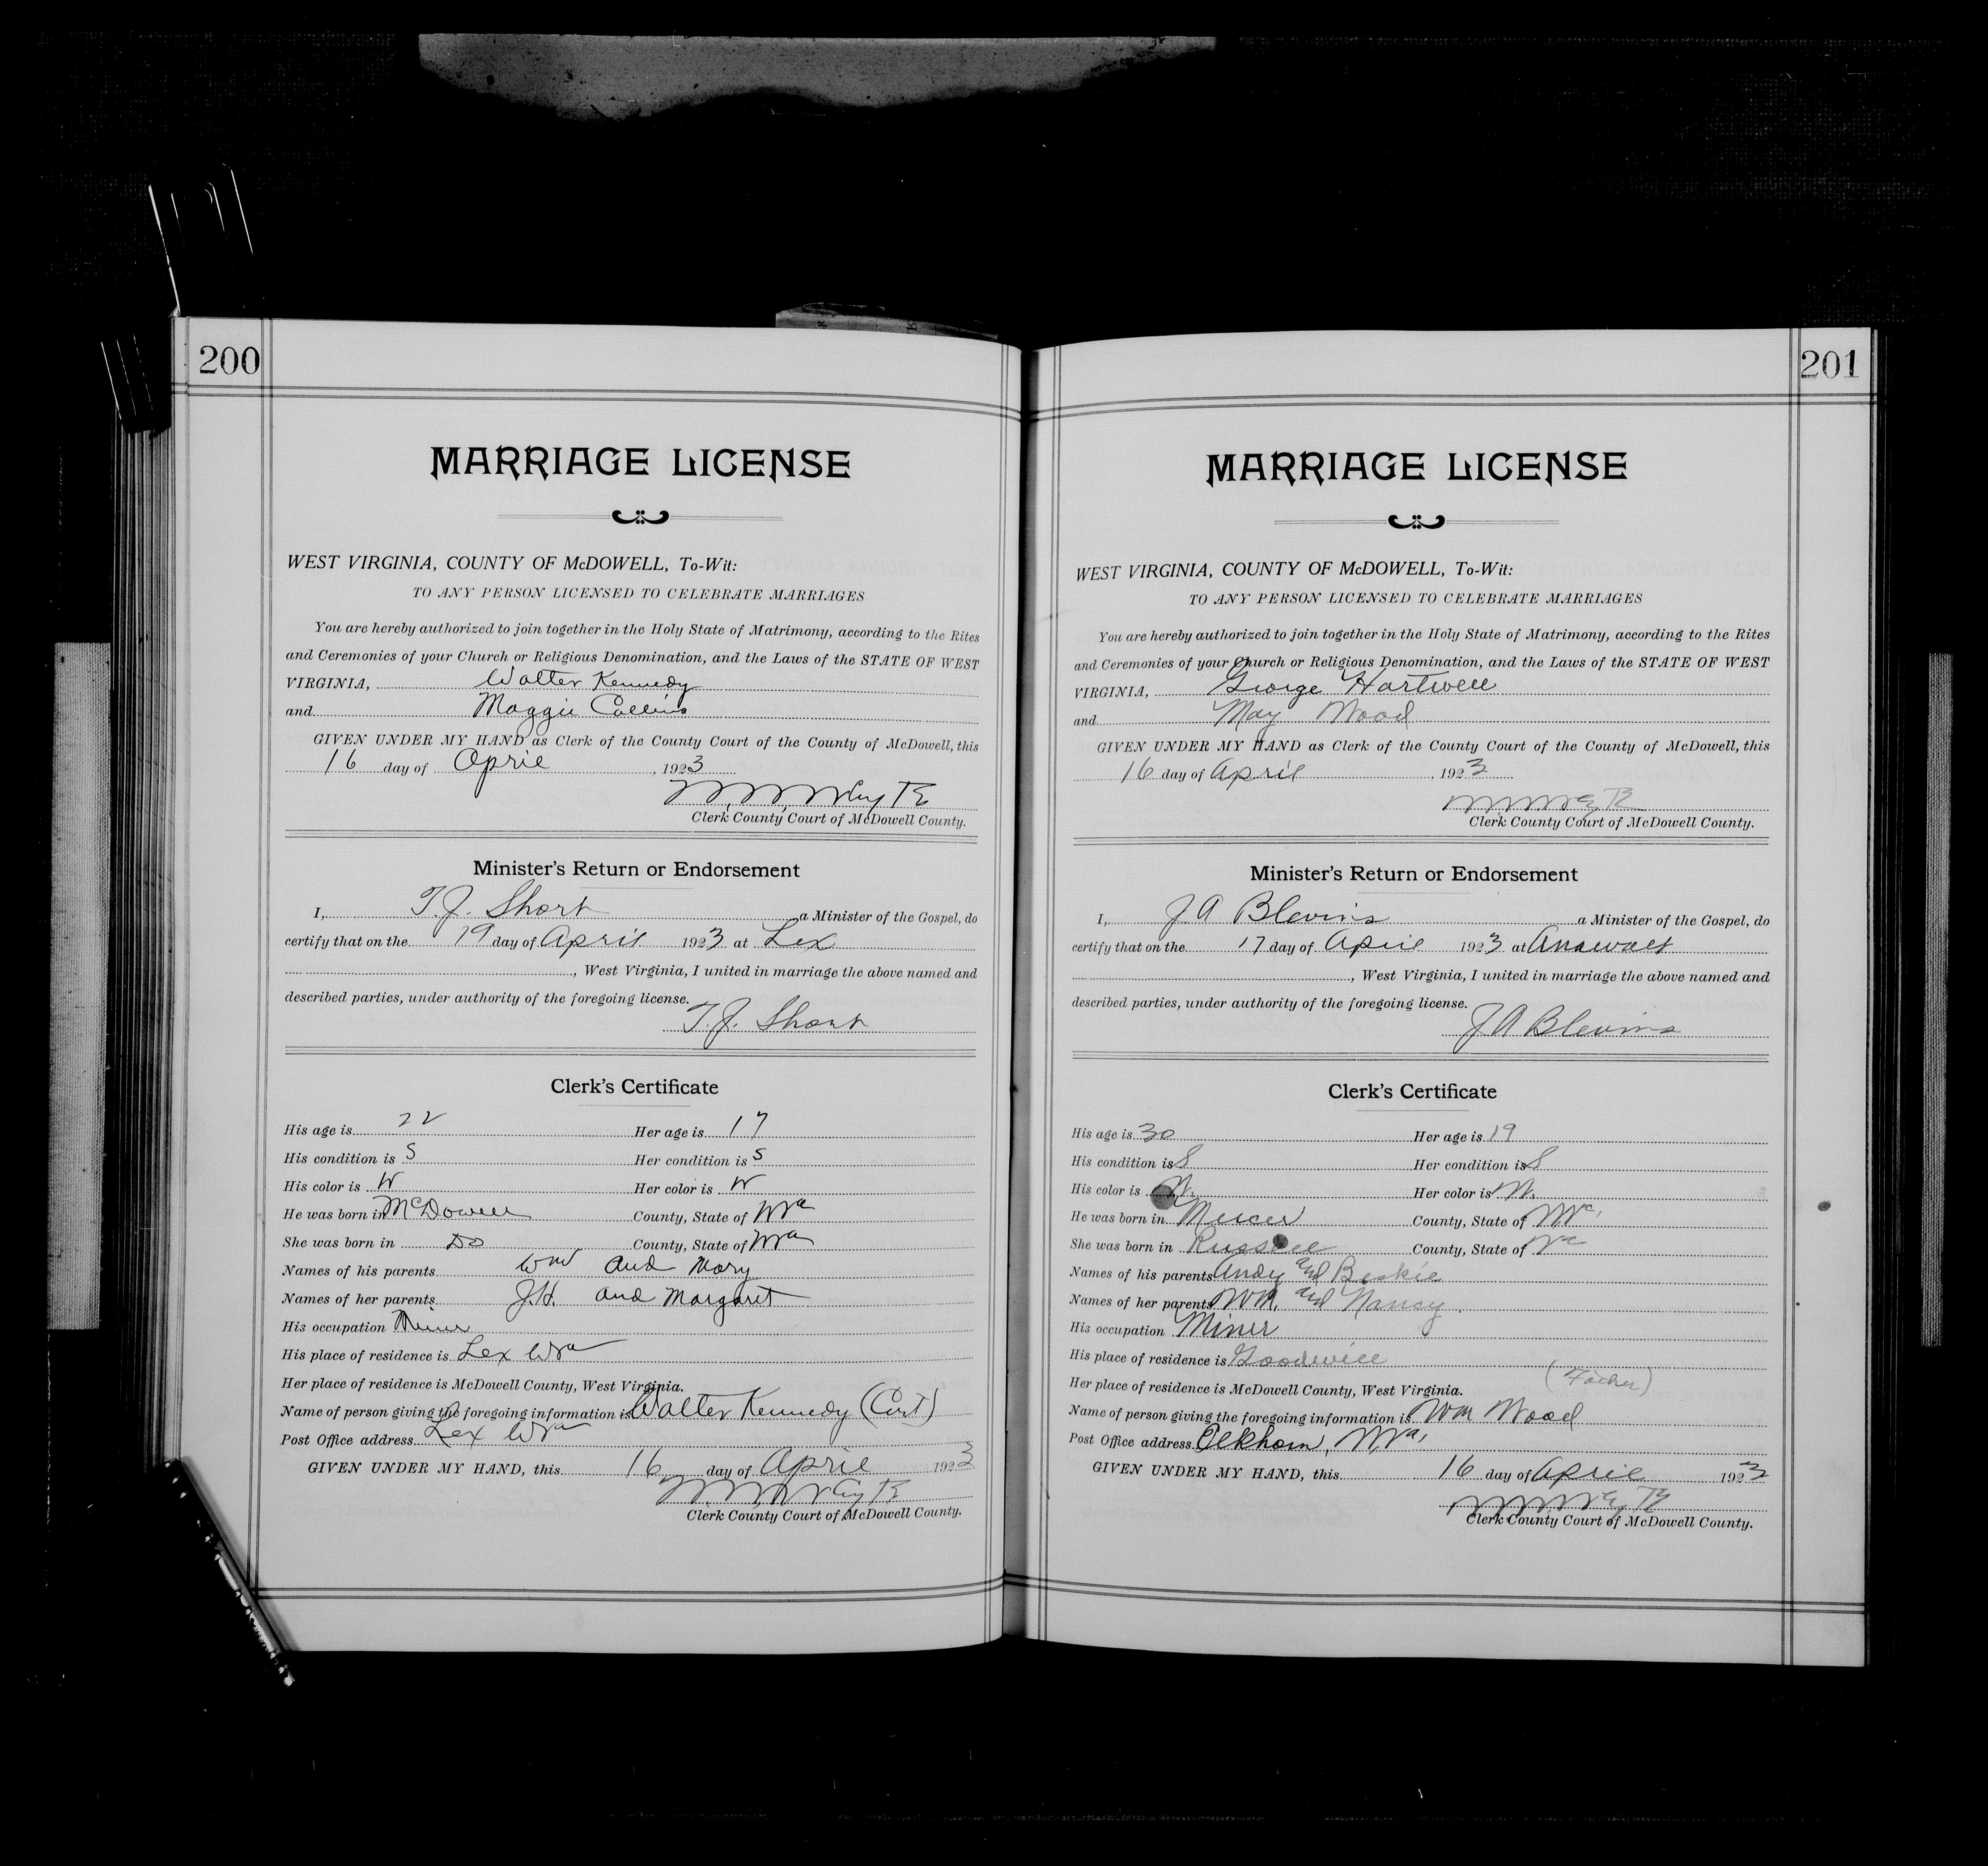 200
MARRIAGE LICENSE
WEST VIRGINIA, COUNTY OF McDOWELL, To-Wit:
TO ANY PERSON LICENSED TO CELEBRATE MARRIAGES
You are hereby authorized to join together in the Holy State of Matrimony, according to the Rites
and Ceremonies of your Church or Religious Denomination, and the Laws of the STATE OF WEST
VIRGINIA, Walter Kennedy
and Maggie Collins
GIVEN UNDER MY HAND as Clerk of the County Court of the County of McDowell, this
16 day of April, 1923
Clerk County Court of McDowell County.
Minister's Return or Endorsement
I, T.J. Short a Minister of the Gospel, do
certify that on the 19 day of April 1923 at Lex
, West Virginia, I united in marriage the above named and
described parties, under authority of the foregoing license.
T.J. Short
Clerk's Certificate
His age is 22 Her age is 17
His condition is S Her condition is S
His color is W Her color is W
He was born in McDowell County, State of WVa
She was born in Do County, State of WVa
Names of his parents Wm and Mary
Names of her parents J.H. and Margaret
His occupation Miner
His place of residence is Lex WVa
Her place of residence is McDowell County, West Virginia.
Name of person giving the foregoing information is Walter Kennedy (Cert)
Post Office address Lex WVa
GIVEN UNDER MY HAND, this 16 day of April 1923
Clerk County Court of McDowell County.
201
MARRIAGE LICENSE
WEST VIRGINIA, COUNTY OF McDOWELL, To-Wit:
TO ANY PERSON LICENSED TO CELEBRATE MARRIAGES
You are hereby authorized to join together in the Holy State of Matrimony, according to the Rites
and Ceremonies of your Church or Religious Denomination, and the Laws of the STATE OF WEST
VIRGINIA, George Hartwell
and May Wood
GIVEN UNDER MY HAND as Clerk of the County Court of the County of McDowell, this
16 day of April, 1923
Clerk County Court of McDowell County.
Minister's Return or Endorsement
I, J A Blevins a Minister of the Gospel, do
certify that on the 17 day of April 1923 at Anawalt
, West Virginia, I united in marriage the above named and
described parties, under authority of the foregoing license.
J A Blevins
Clerk's Certificate
His age is 30 Her age is 19
His condition is S Her condition is S
His color is W. Her color is W.
He was born in Mercer County, State of W.Va.
She was born in Russell County, State of Va
Names of his parents Andy and Beckie
Names of her parents Wm. and Nancy.
His occupation Miner
His place of residence is Goodwill
Her place of residence is McDowell County, West Virginia. (Father)
Name of person giving the foregoing information is Wm Wood
Post Office address Elkhorn, W.Va.
GIVEN UNDER MY HAND, this 16 day of April 1923
Clerk County Court of McDowell County.